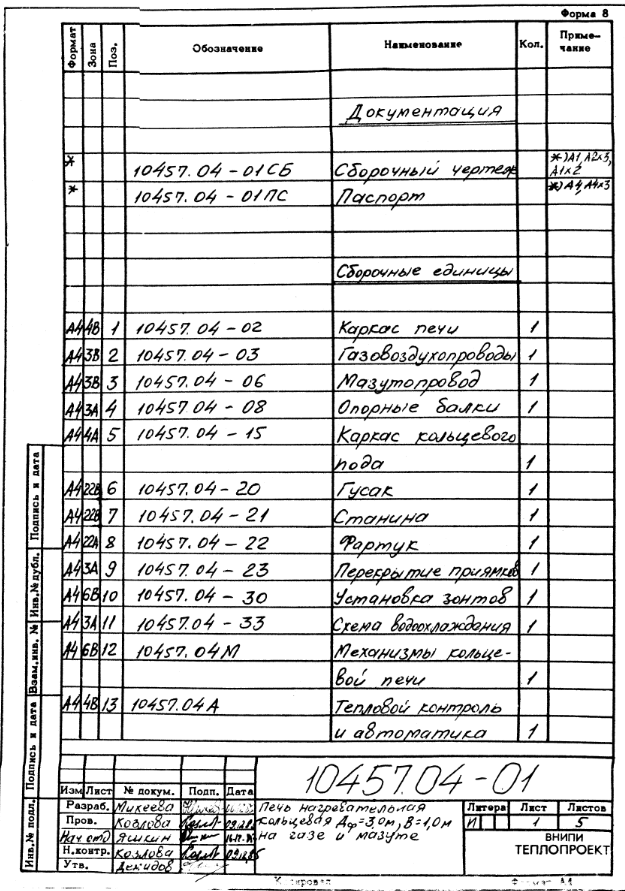 Форма 8
Формат Зона Поз. Обозначение Наименование Кол. Приме-
чание
Документация
* 10457.04-01СБ Сборочный чертеж *)А1, А2х3,
А1х2
* 10457.04-01ПС Паспорт *)А4, А4х3
Сборочные единицы
А4 4В 1 10457.04-02 Каркас печи 1
А4 3В 2 10457.04-03 Газовоздухопроводы 1
А4 3В 3 10457.04-06 Мазутопровод 1
А4 3А 4 10457.04-08 Опорные балки 1
А4 4А 5 10457.04-15 Каркас кольцевого
пода 1
А4 22В 6 10457.04-20 Гусак 1
А4 22В 7 10457.04-21 Станина 1
А4 22А 8 10457.04-22 Фартук 1
А4 3А 9 10457.04-23 Перекрытие приямков 1
А4 6В 10 10457.04-30 Установка зонтов 1
А4 3А 11 10457.04-33 Схема водоохлаждания 1
А4 6В 12 10457.04М Механизмы кольце-
вой печи 1
А4 4В 13 10457.04А Тепловой контроль
и автоматика 1
Инв.№ подл. Подпись и дата Взам.инв. № Инв.№ дубл. Подпись и дата
10457.04-01
Изм Лист № докум. Подп. Дата
Разраб. Микеева
Пров. Козлова
Нач отд Яшкин
Н.контр. Козлова
Утв. Демидов
Печь нагревательная
кольцевая Дср=3,0м, В=1,0м
на газе и мазуте
Литера Лист Листов
И 1 5
ВНИПИ
ТЕПЛОПРОЕКТ
Копировал Формат А4